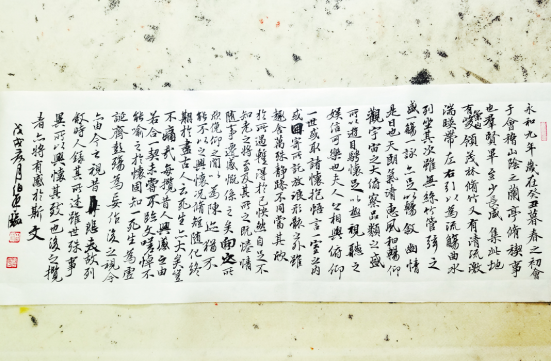 永和九年歲在癸丑暮春之初會
于會稽山陰之蘭亭脩禊事
也群賢畢至少長咸集此地
有崇山峻領茂林脩竹又有清流激
湍暎帶左右引以為流觴曲水
列坐其次雖無絲竹管弦之
盛一觴一詠亦足以暢叙幽情
是日也天朗氣清惠風和暢仰
觀宇宙之大俯察品類之盛
所以遊目騁懷足以極視聽之
娛信可樂也夫人之相與俯仰
一世或取諸懷抱悟言一室之內
或因寄所託放浪形骸之外雖
趣舍萬殊靜躁不同當其欣
於所遇暫得於己怏然自足不
知老之將至及其所之既惓情
隨事遷感慨係之矣向之所
欣俛仰之間以為陳迹猶不
能不以之興懷況脩短隨化終
期於盡古人云死生亦大矣豈
不痛哉每攬昔人興感之由
若合一契未嘗不臨文嗟悼不
能喻之於懷固知一死生為虛
誕齊彭殤為妄作後之視今
亦由今之視昔悲夫故列
敘時人錄其所述雖世殊事
異所以興懷其致一也後之攬
者亦將有感於斯文
戊戌月